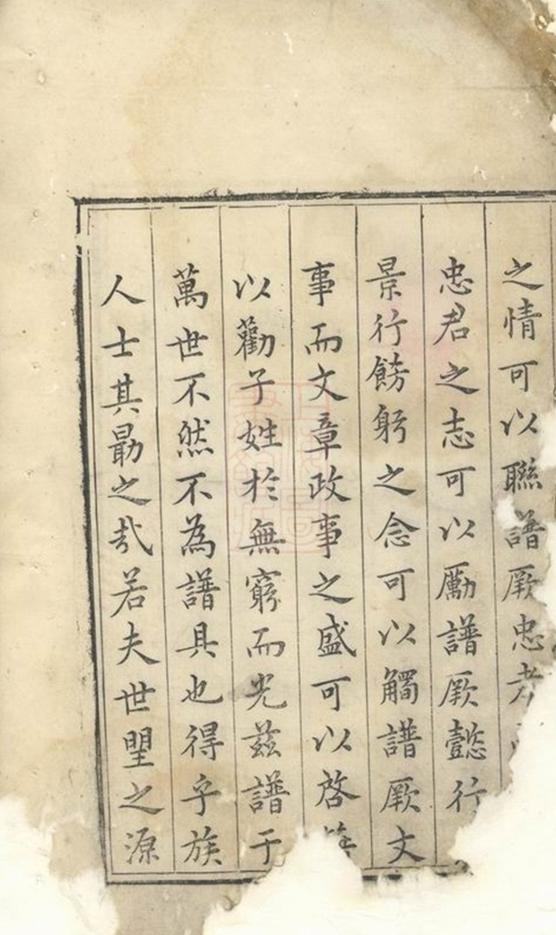 之情可以聯譜厥忠者
忠君之志可以勵譜厥懿行
景行餝躬之念可以觸譜厥文
事而文章政事之盛可以啓
以勸子姓於無窮而光茲譜于
萬世不然不為譜具也得乎族
人士其勖之哉若夫世塱之源